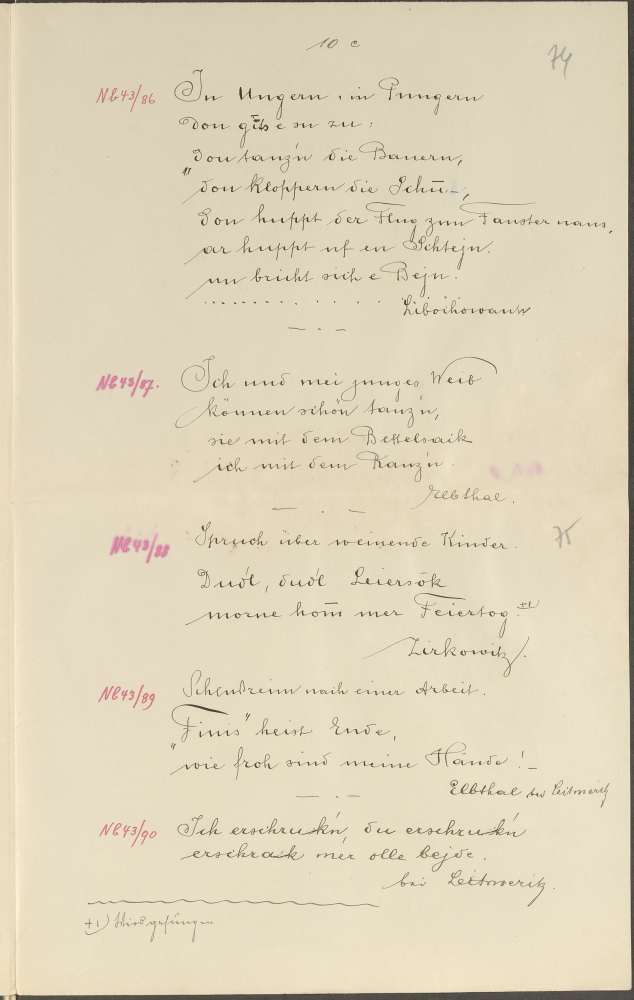 10 c
74
Nl 43/86 In Ungern, in Pungern
don gits e su zu:
don tanz'n die Bauern,
"don kloppern die Schū-,
don huppt der Flug zun Fanster naus,
ar huppt uf en Schtejn.
un bricht sich e Bejn.
Libochowan
Nl 43/87. Ich und mei junges Weib
können schön tanz'n,
sie mit dem Bettelsaik
ich mit dem Ranz'n.
Elbthal.
Nl 43/88 Spruch über weinende Kinder.
75
Dud'l, dud'l Leiersök
morne hom̄ mer Feiertog. +1)
Zirkowitz.
Nl 43/89 Schlußreim nach einer Arbeit.
"Finis" heist Ende,
wie froh sind meine Hände!
Elbthal bei Leitmeritz
Nl 43/90 Ich erschruk'n, du erschruk'n
erschrak mer olle bejde.
bei Leitmeritz.
+1) Wird gesungen